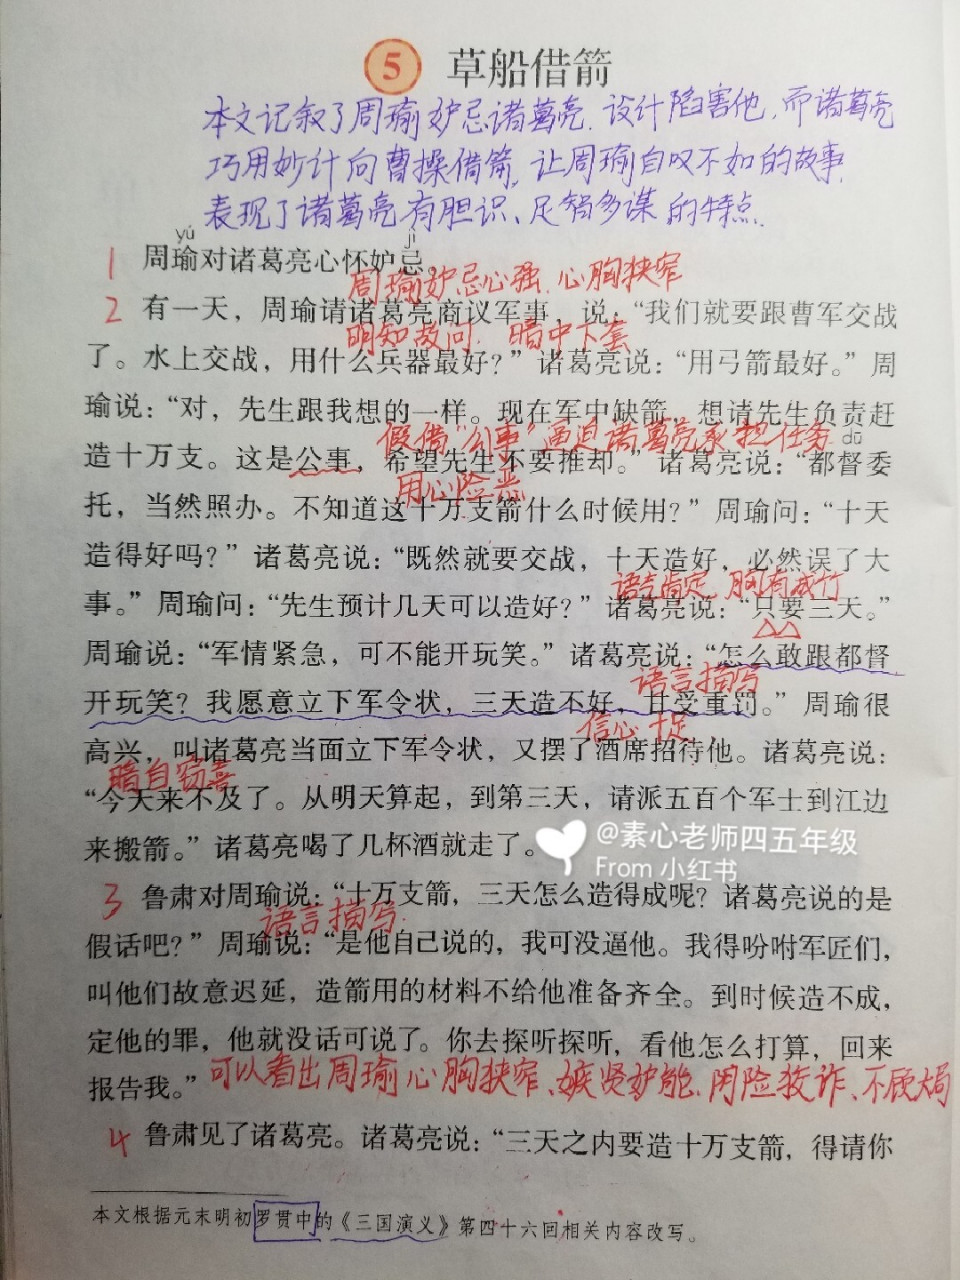 5 草船借箭
本文记叙了周瑜妒忌诸葛亮,设计陷害他,而诸葛亮
巧用妙计向曹操借箭,让周瑜自叹不如的故事.
表现了诸葛亮有胆识、足智多谋的特点.
yú jì
1 周瑜对诸葛亮心怀妒忌。
周瑜妒忌心强、心胸狭窄
2 有一天,周瑜请诸葛亮商议军事,说:“我们就要跟曹军交战
明知故问. 暗中下套
了。水上交战,用什么兵器最好?”诸葛亮说:“用弓箭最好。”周
瑜说:“对,先生跟我想的一样。现在军中缺箭,想请先生负责赶
假借“公事”逼迫诸葛亮承担任务
dū
造十万支。这是公事,希望先生不要推却。”诸葛亮说:“都督委
用心险恶
托,当然照办。不知道这十万支箭什么时候用?”周瑜问:“十天
造得好吗?”诸葛亮说:“既然就要交战,十天造好,必然误了大
语言肯定,胸有成竹
事。”周瑜问:“先生预计几天可以造好?”诸葛亮说:“只要三天。”
周瑜说:“军情紧急,可不能开玩笑。”诸葛亮说:“怎么敢跟都督
语言描写
开玩笑?我愿意立下军令状,三天造不好,甘受重罚。”周瑜很
信心十足
高兴,叫诸葛亮当面立下军令状,又摆了酒席招待他。诸葛亮说:
暗自窃喜
“今天来不及了。从明天算起,到第三天,请派五百个军士到江边
来搬箭。”诸葛亮喝了几杯酒就走了。
@素心老师四五年级
From 小红书
3 鲁肃对周瑜说:“十万支箭,三天怎么造得成呢?诸葛亮说的是
语言描写.
假话吧?”周瑜说:“是他自己说的,我可没逼他。我得吩咐军匠们,
叫他们故意迟延,造箭用的材料不给他准备齐全。到时候造不成,
定他的罪,他就没话可说了。你去探听探听,看他怎么打算,回来
报告我。”
可以看出周瑜心胸狭窄、嫉贤妒能、阴险狡诈、不顾大局
4 鲁肃见了诸葛亮。诸葛亮说:“三天之内要造十万支箭,得请你
本文根据元末明初罗贯中的《三国演义》第四十六回相关内容改写。